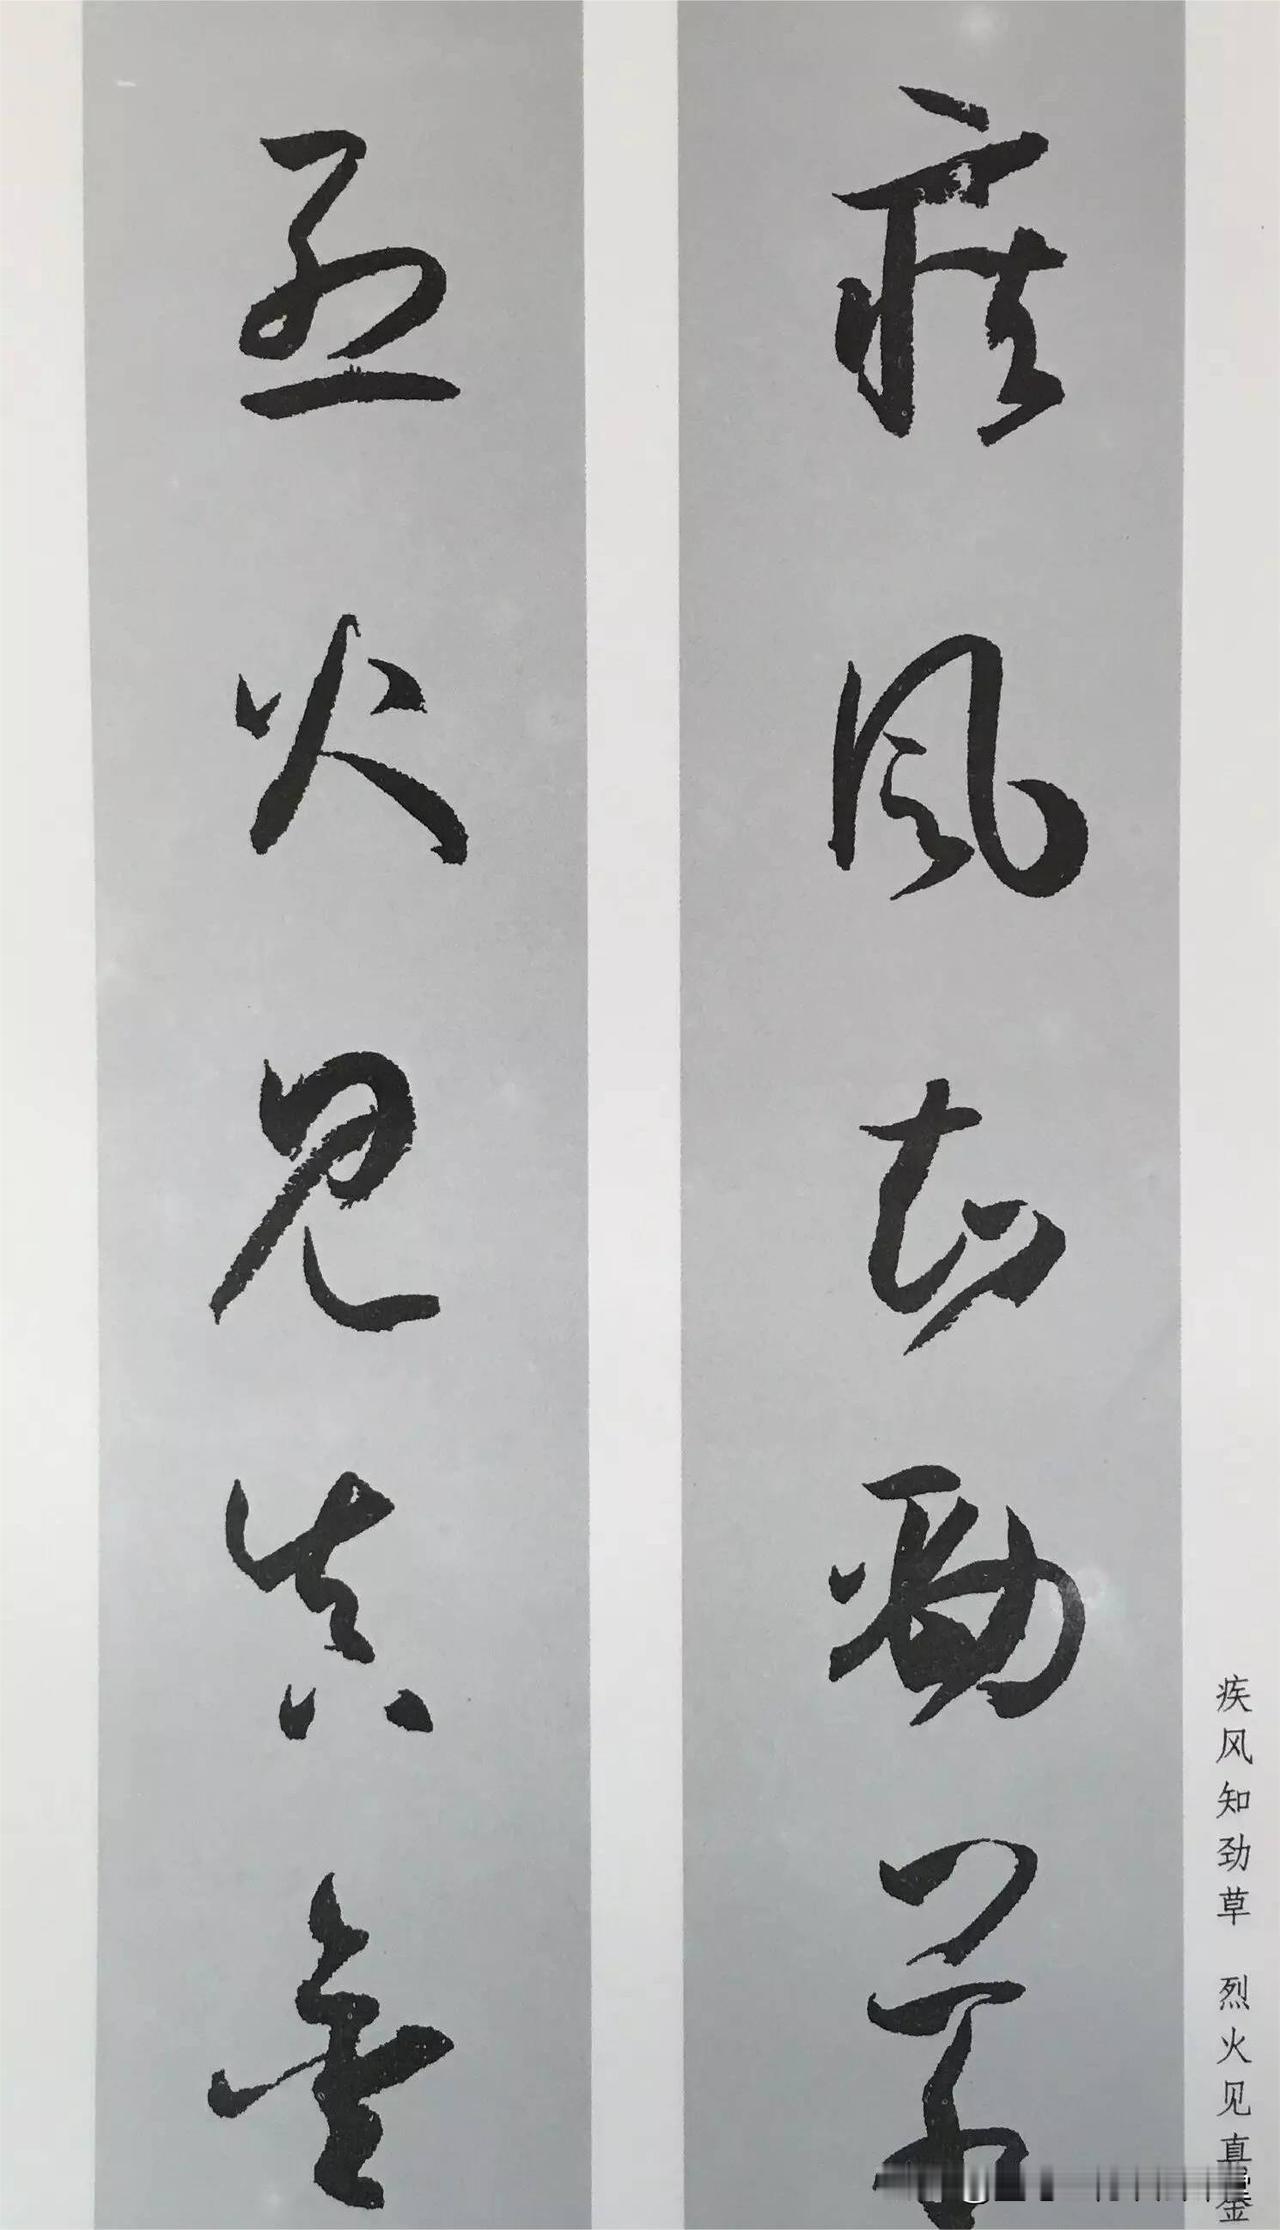 疾風知勁草
烈火見真金
疾风知劲草 烈火见真金